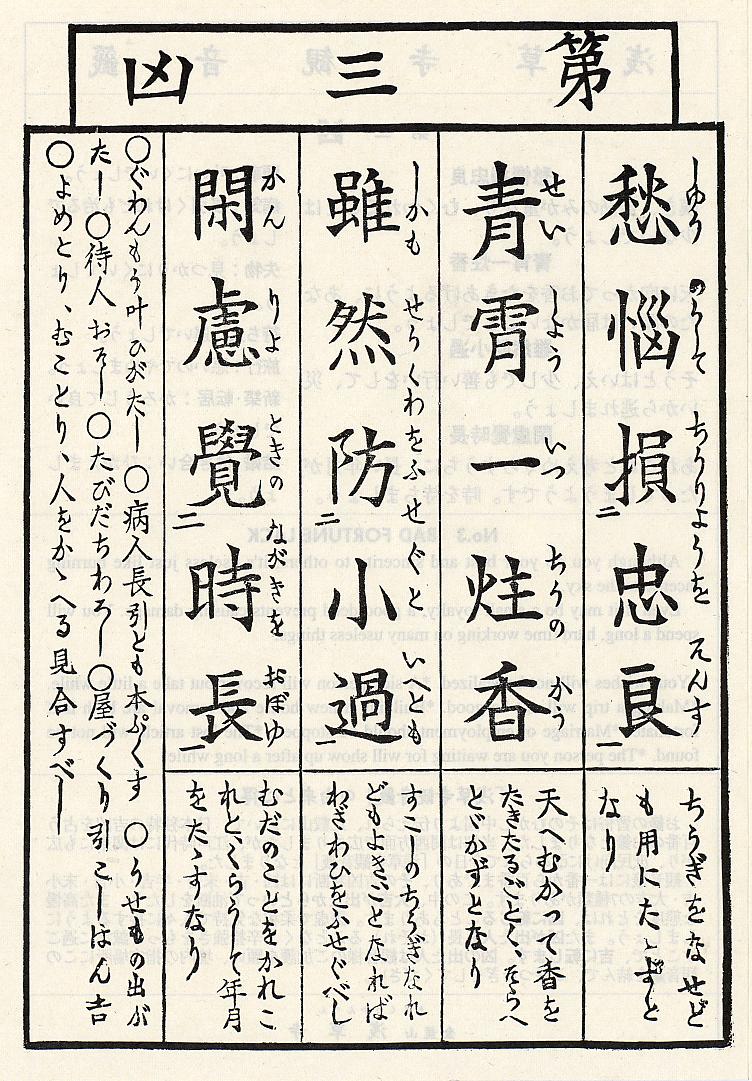 第三凶
愁惱損二忠良
しゆうのうして ちうりようを そんす
ちうぎをなせど
も用にたゝずと
なり
青霄一炷香
せいしよう いつちうの かう
天へむかつて香を
たきたるごとくそらへ
とどかずとなり
雖然防二小過一
しかも せうくわをふせぐと いへども
すこしのちうぎなれ
どもよきことなれば
わざわひをふせぐべし
閑慮覺二時長一
かんりよ ときの ながきを おぼゆ
むだのことをかれこ
れとくらうして年月
をたゝすなり
〇ぐわんもう叶ひがたし〇病人長引とも本ぷくす〇うせもの出が
たし〇待人おそし〇たびだちわろし〇屋づくり引こしはん吉
〇よめとり、むことり、人をかゝへる見合すべし